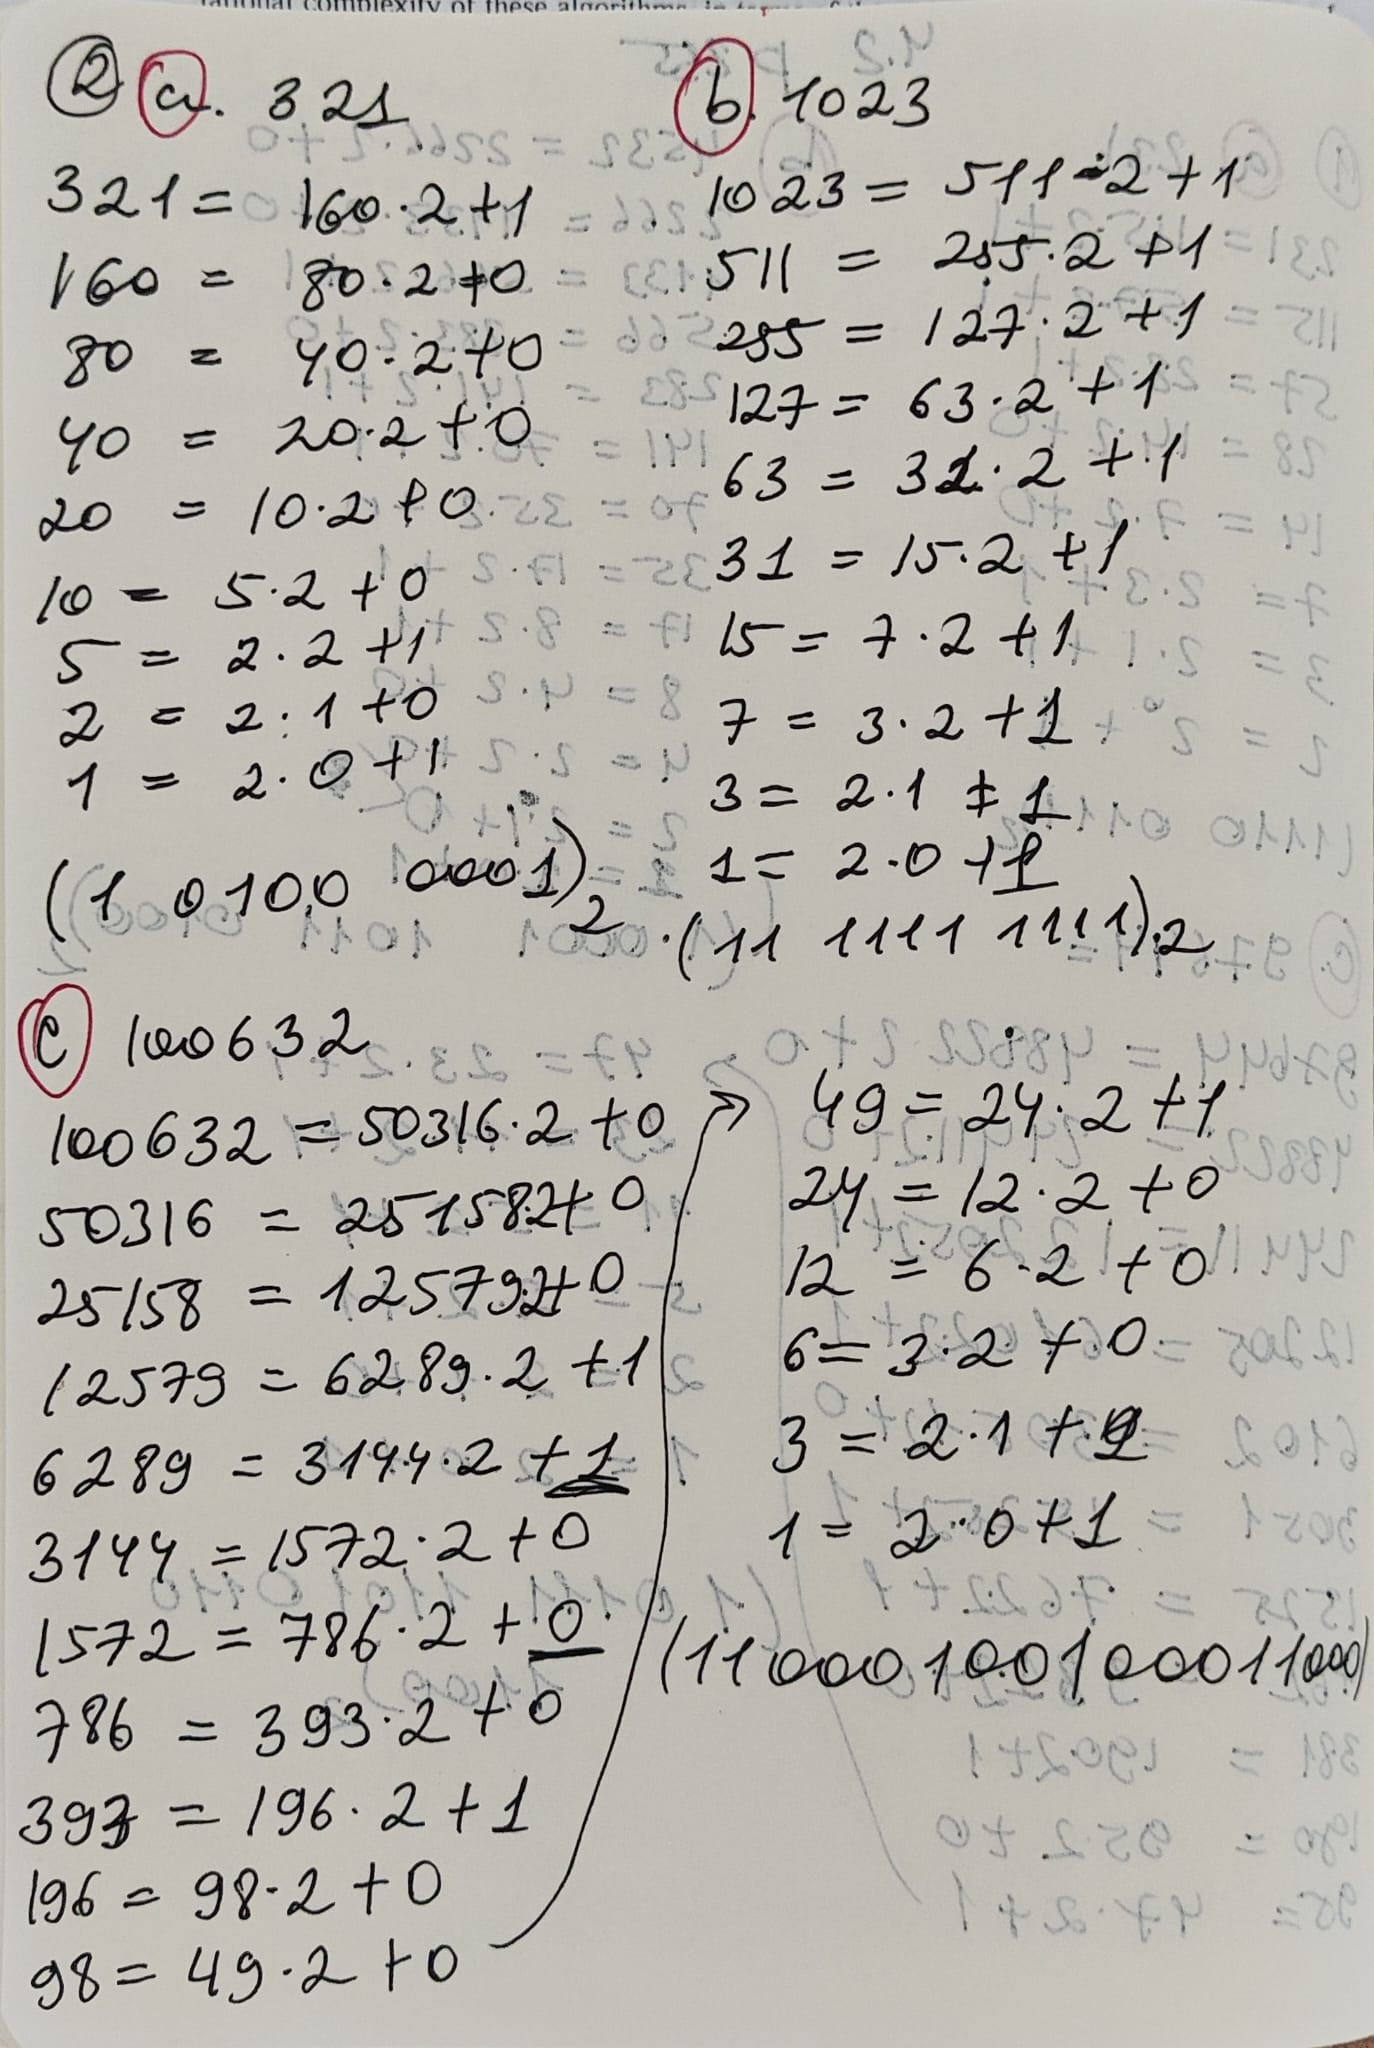 rational complexity of these algorithms, in terms of
② a. 321
321 = 160·2+1
160 = 80·2+0
80 = 40·2+0
40 = 20·2+0
20 = 10·2+0
10 = 5·2+0
5 = 2·2+1
2 = 2·1+0
1 = 2·0+1
(1 0100 0001)₂
b. 1023
1023 = 511·2+1
511 = 255·2+1
255 = 127·2+1
127 = 63·2+1
63 = 31·2+1
31 = 15·2+1
15 = 7·2+1
7 = 3·2+1
3 = 2·1+1
1 = 2·0+1
(11 1111 1111)₂
c 100632
100632 = 50316·2+0
50316 = 25158·2+0
25158 = 12579·2+0
12579 = 6289·2+1
6289 = 3144·2+1
3144 = 1572·2+0
1572 = 786·2+0
786 = 393·2+0
393 = 196·2+1
196 = 98·2+0
98 = 49·2+0
→ 49 = 24·2+1
24 = 12·2+0
12 = 6·2+0
6 = 3·2+0
3 = 2·1+1
1 = 2·0+1
(11000100100011000)